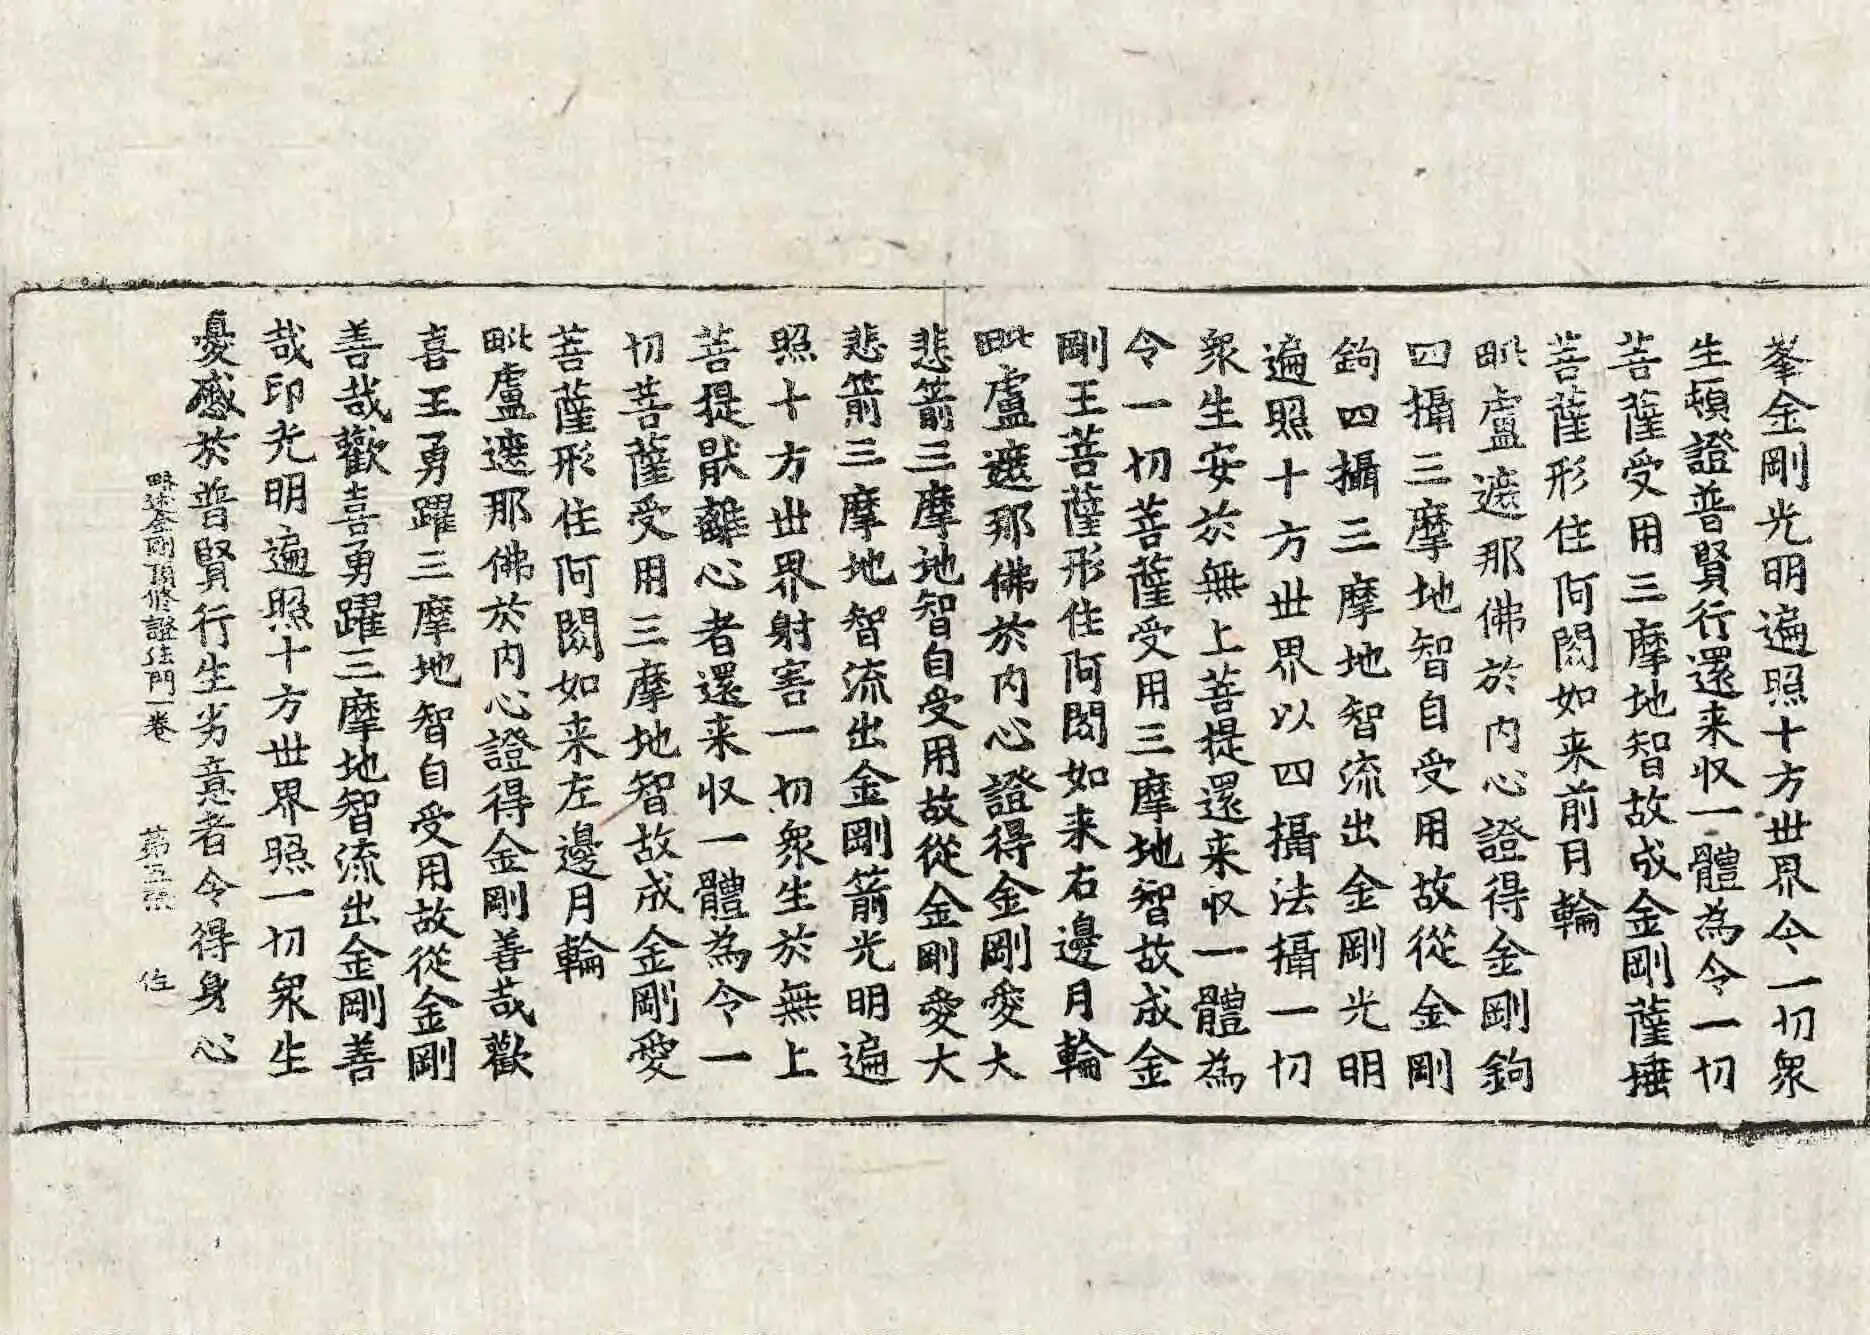 峯金剛光明遍照十方世界令一切衆
生頓證普賢行還来収一體為令一切
菩薩受用三摩地智故成金剛薩埵
菩薩形住阿閦如来前月輪
毗盧遮那佛於内心證得金剛鉤
四攝三摩地智自受用故從金剛
鉤四攝三摩地智流出金剛光明
遍照十方世界以四攝法攝一切
衆生安於無上菩提還来収一體為
令一切菩薩受用三摩地智故成金
剛王菩薩形住阿閦如来右邊月輪
毗盧遮那佛於内心證得金剛愛大
悲箭三摩地智自受用故從金剛愛大
悲箭三摩地智流出金剛箭光明遍
照十方世界射害一切衆生於無上
菩提猒離心者還来収一體為令一
切菩薩受用三摩地智故成金剛愛
菩薩形住阿閦如来左邊月輪
毗盧遮那佛於内心證得金剛善哉歡
喜王勇躍三摩地智自受用故從金剛
善哉歡喜勇躍三摩地智流出金剛善
哉印光明遍照十方世界照一切衆生
憂慼於普賢行生劣意者令得身心
略述金剛頂修證法門一卷 第五張 佐